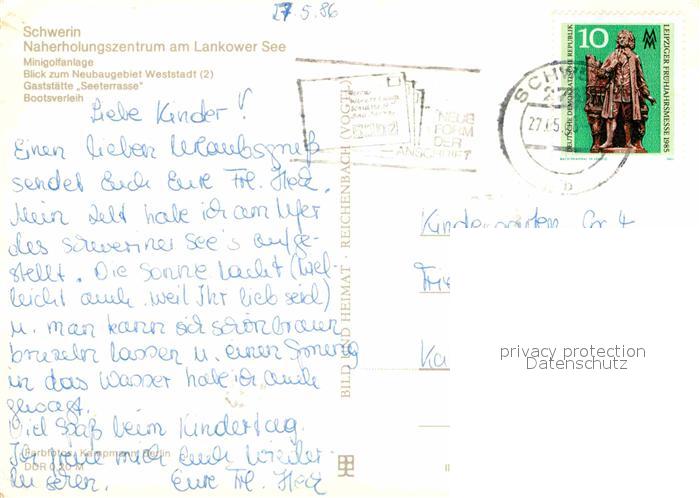 27.5.86
Schwerin
Naherholungszentrum am Lankower See
Minigolfanlage
Blick zum Neubaugebiet Weststadt (2)
Gaststätte „Seeterrasse"
Bootsverleih
Liebe Kinder!
Einen lieben Urlaubsgruß
sendet Euch Eure Frl. Herz.
Mein Zelt habe ich am Ufer
des schweriner See's aufge-
stellt. Die Sonne lacht (viel-
leicht auch weil Ihr lieb seid)
u. man kann sich schön braun
bruzeln lassen u. einen Sprung
in das Wasser habe ich auch
gewagt.
Viel Spaß beim Kindertag.
Ich freue mich Euch wieder-
zu sehen. Eure Frl. Herz
Farbfotos: Kampmann, Berlin
DDR 0,20 M
BILD UND HEIMAT · REICHENBACH (VOGTL)
NEUE
FORM
DER
ANSCHRIFT
SCHWE
27.05.
10
DEUTSCHE DEMOKRATISCHE REPUBLIK
LEIPZIGER FRÜHJAHRSMESSE 1985
Kindergarten Gr. 4
Ka
privacy protection
Datenschutz